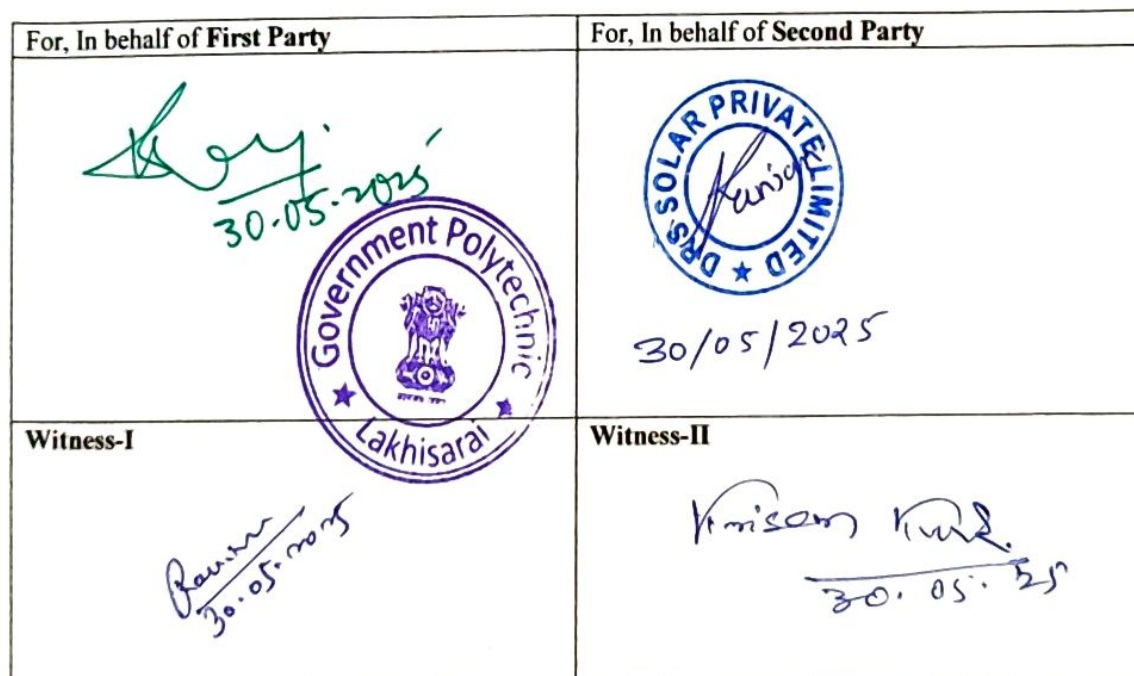 For, In behalf of First Party
For, In behalf of Second Party
30.05.2025
Government Polytechnic
★ Lakhisarai ★
DRS SOLAR PRIVATE LIMITED ★
30/05/2025
Witness-I
Witness-II
30.05.2025
30.05.25